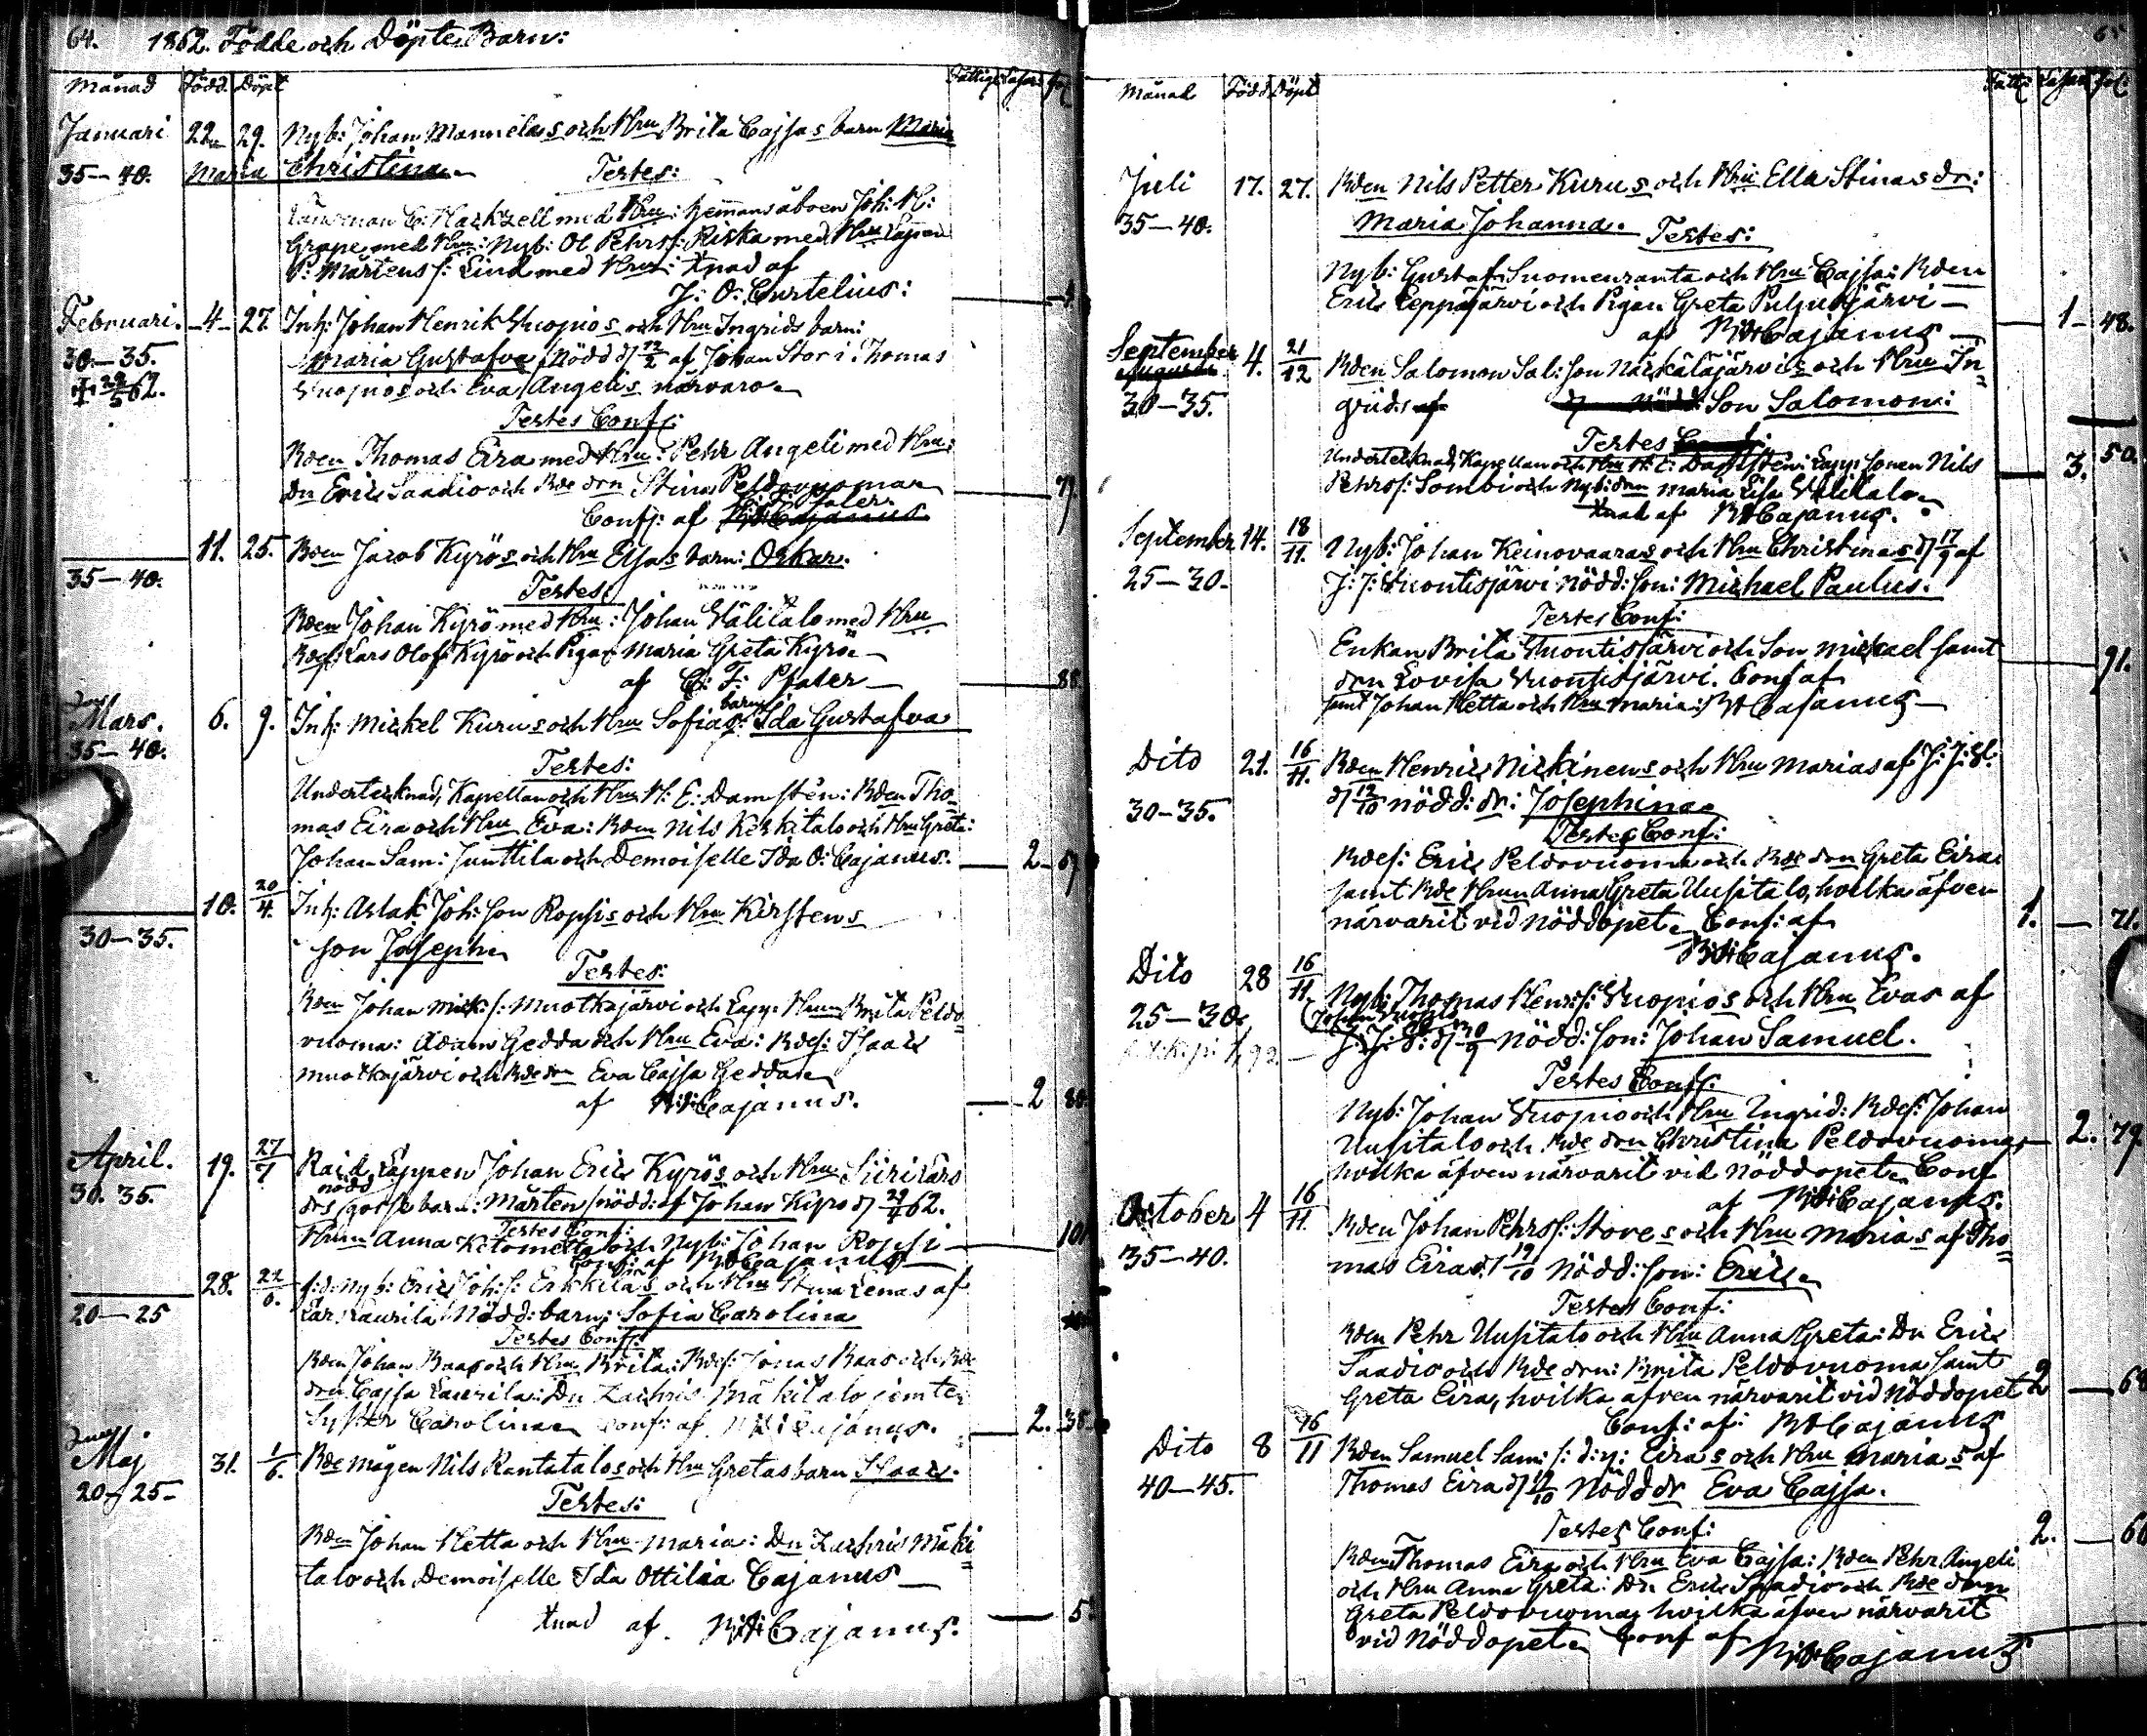 64. 1862. Födde och Döpte Barn:
Månad Född Döpt
Januari 22 29. Nyb: Johan Mannelas och Hru Brita Cajsas barn Maria
35–40. Maria Christina. Testes:
Länsman C: Hackzell med Hru: hemmansåboen Joh: H:
Grape med Hru: Nyb: Ol Pehrs: Riska med Hru
P: Mårtens s: Lind med Hru: Xnad af
J: O: Curtelius:
Februari. 4 27. Inh: Johan Henrik Vuopios och Hru Ingrids barn:
30–35. Maria Gustafva, Nödd d 12/2 af Johan Stor i Thomas
62. Vuopios och Eva Angelis närvaro
Testes Conf:
Rden Thomas Eira med Hru: Pehr Angeli med Hru:
Dn Eric Saadio och Rde drn Stina Peldovuoma 79.
Conf: af Pfaler
11. 25. Rden Jacob Kyrös och Hru Elsas barn: Oskar.
35–40. Testes:
Rden Johan Kyrö med Hru: Johan Välitalo med Hru
Rdes: Lars Olof Kyrö och Pigan Maria Greta Kyrö
af C: F: Pfaler 88
Mars. 6. 9. Inh: Mickel Kurus och Hru Sofias: barn Ida Gustafva
35–40. Testes:
Undertecknad, Kapellan och Hru H: E: Damstén: Rden Tho
mas Eira och Hru Eva: Rden Nils Keskitalo och Hru Greta:
Johan Sam: Junttila och Demoiselle Ida O: Cajanus. 2 57
10. 20/4. Inh: Aslak Joh: Son Ropsis och Hru Kirstens
30–35. Son Joseph
Testes:
Rden Johan Mick: s: Muotkajärvi och Lapp: Hrun Brita Peldo
vuoma: Adam Gedda och Hru Eva: Rdes: Isaac
Muotkajärvi och Rde drn Eva Cajsa Gedda
af R: H: Cajanus. 2
April. 19. 27/7 Raid Lappen Johan Eric Kyrös och Hru Siiri Lars
30. 35. drs gosse barn: Mårten nödd: af Johan Kyrö d 29/4 62.
Testes Conf:
Hrun Anna Ketomella och Nyb: Johan Ropsi 101
Conf: af R: H: Cajanus
28. 22/6. f:d: Nyb: Eric Joh: s: Erkkiläs och Hru Stina Lenas af
20–25 Lars Laurila Nödd: barn: Sofia Carolina
Testes Conf:
Rden Johan Baas och Hru Brita: Rdes: Jonas Baas och Rde
drn Cajsa Laurila: Dn Zachris Mäkitalo jemte
Syster Carolina Conf: af R: H: Cajanus. 2. 38
Maj 31. 1/6. Rde mågen Nils Rantatalos och Hru Gretas barn Isaac.
20–25– Testes:
Rden Johan Hetta och Hru Maria: Dn Zachris Mäki
talo och Demoiselle Ida Ottilia Cajanus
Xnad af R: H: Cajanus. 5
65
Månad Född Döpt
Juli 17. 27. Rden Nils Petter Kurus och Hru Ella Stinas dr:
35–40. Maria Johanna. Testes:
Nyb: Gustaf Suomenranta och Hru Cajsa: Rden
Eric Leppäjärvi och Pigan Greta Palojärvi
af R: H: Cajanus 1 48.
September 4. 21/12 Rden Salomon Sal: Son Näkkäläjärvis och Hru In
30–35. grids Son Salomon:
Testes
Undertecknad, Kapellan och Hru H: E: Damstén: Lapp: Sonen Nils
Pehrs: Sombi och Nyb: drn Maria Lisa Välitalo 3. 50.
Xnad af R: H: Cajanus.
September 14. 18/11. Nyb: Johan Keinovaaras och Hru Christinas d 17/9 af
25–30. J: J: Vuontisjärvi nödd: Son: Michael Paulus.
Testes Conf:
Enkan Brita Vuontisjärvi och Son Mickael samt
drn Lovisa Vuontisjärvi. Conf af 91.
samt Johan Hetta och Hru Maria: R: H: Cajanus
Dito 21. 16/11. Rden Henric Nickinens och Hru Marias af J: J: V:
30–35. d 12/10 nödd: dr: Josephina
Testes Conf:
Rdes: Eric Peldovuoma och Rde drn Greta Eira:
samt Rde Hrun Anna Greta Uusitalo, hvilka äfven
närvarit vid Nöddopet. Conf: af 1. 71.
R: H: Cajanus.
Dito 28 16/11. Nyb: Thomas Henr: s: Vuopios och Hru Evas af
25–30. Johan Vuopio
J: J: V: d 30/9 nödd: Son: Johan Samuel.
Testes Conf:
Nyb: Johan Vuopio och Hru Ingrid: Rdes: Johan
Uusitalo och Rde drn Christina Peldovuoma, 2. 79
hvilka äfven närvarit vid Nöddopet. Conf
af R: H: Cajanus.
October 4 16/11. Rden Johan Pehrs s: Stores och Hru Marias af Tho
35–40. mas Eira d 19/10 Nödd: Son: Eric
Testes Conf:
Rden Pehr Uusitalo och Hru Anna Greta: Dn Eric
Saadio och Rde drn: Brita Peldovuoma samt
Greta Eira, hvilka äfven närvarit vid Nöddopet 2
Conf: af: R: H: Cajanus
Dito 8 16/11 Rden Samuel Sam: s: d: y: Eiras och Hru Marias af
40–45. Thomas Eira d 19/10 Nödd dr Eva Cajsa.
Testes Conf: 2.
Rden Thomas Eira och Hru Eva Cajsa: Rden Pehr Angeli
och Hru Anna Greta: Dn Eric Saadio och Rde drn
Greta Peldovuoma, hvilka äfven närvarit
vid Nöddopet. Conf af R: H: Cajanus